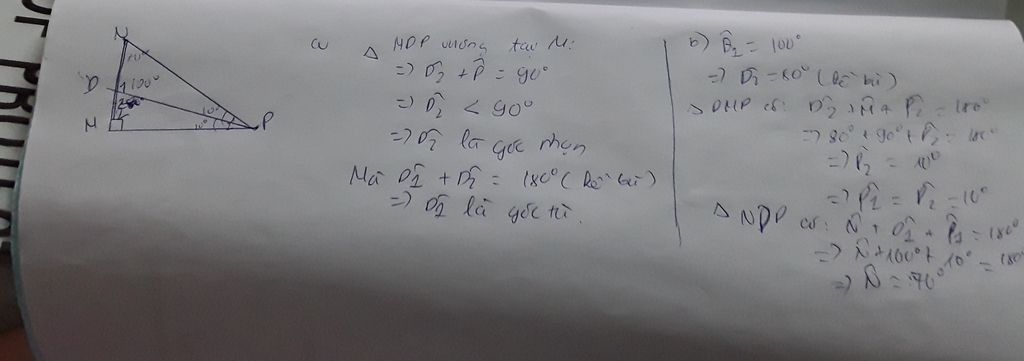 N
70°
D
1 100°
2 80°
M
10°
10°
P
a)
Δ MDP vuông tại M:
=> D̂2 + P̂ = 90°
=> D̂2 < 90°
=> D̂2 là góc nhọn
Mà D̂1 + D̂2 = 180° (kề bù)
=> D̂1 là góc tù.
b) D̂1 = 100°
=> D̂2 = 80° (kề bù)
Δ DMP có: D̂2 + M̂ + P̂2 = 180°
=> 80° + 90° + P̂2 = 180°
=> P̂2 = 10°
=> P̂1 = P̂2 = 10°
Δ NDP có: N̂ + D̂1 + P̂1 = 180°
=> N̂ + 100° + 10° = 180°
=> N̂ = 70°